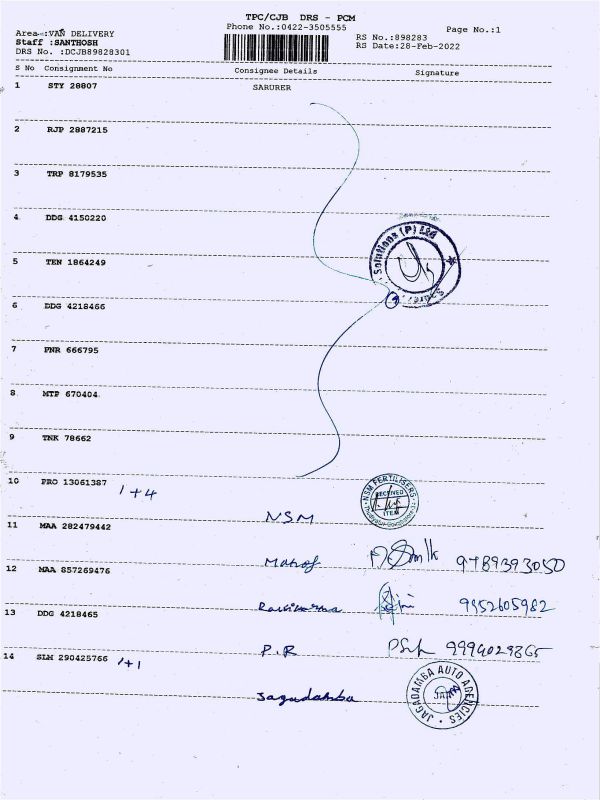 TPC/CJB DRS - PCM
Phone No.:0422-3505555
Page No.:1
Area :VAN DELIVERY
Staff :SANTHOSH
DRS No. :DCJB89828301
RS No.:898283
RS Date:28-Feb-2022
S No Consignment No Consignee Details Signature
1 STY 28807 SARURER
2 RJP 2887215
3 TRP 8179535
4 DDG 4150220
Solutions (P) Ltd
5 TEN 1864249
6 DDG 4218466
7 PNR 666795
8 MTP 670404
9 TNK 78662
10 PRO 13061387 1+4
NSM
NSM FERTILISERS
RECEIVED
ITEM
11 MAA 282479442
9789393050
12 MAA 857269476
9952605982
13 DDG 4218465
P.R
9994029865
14 SLM 290425766 1+1
Jagadamba
JAGADAMBA AUTO AGENCIES